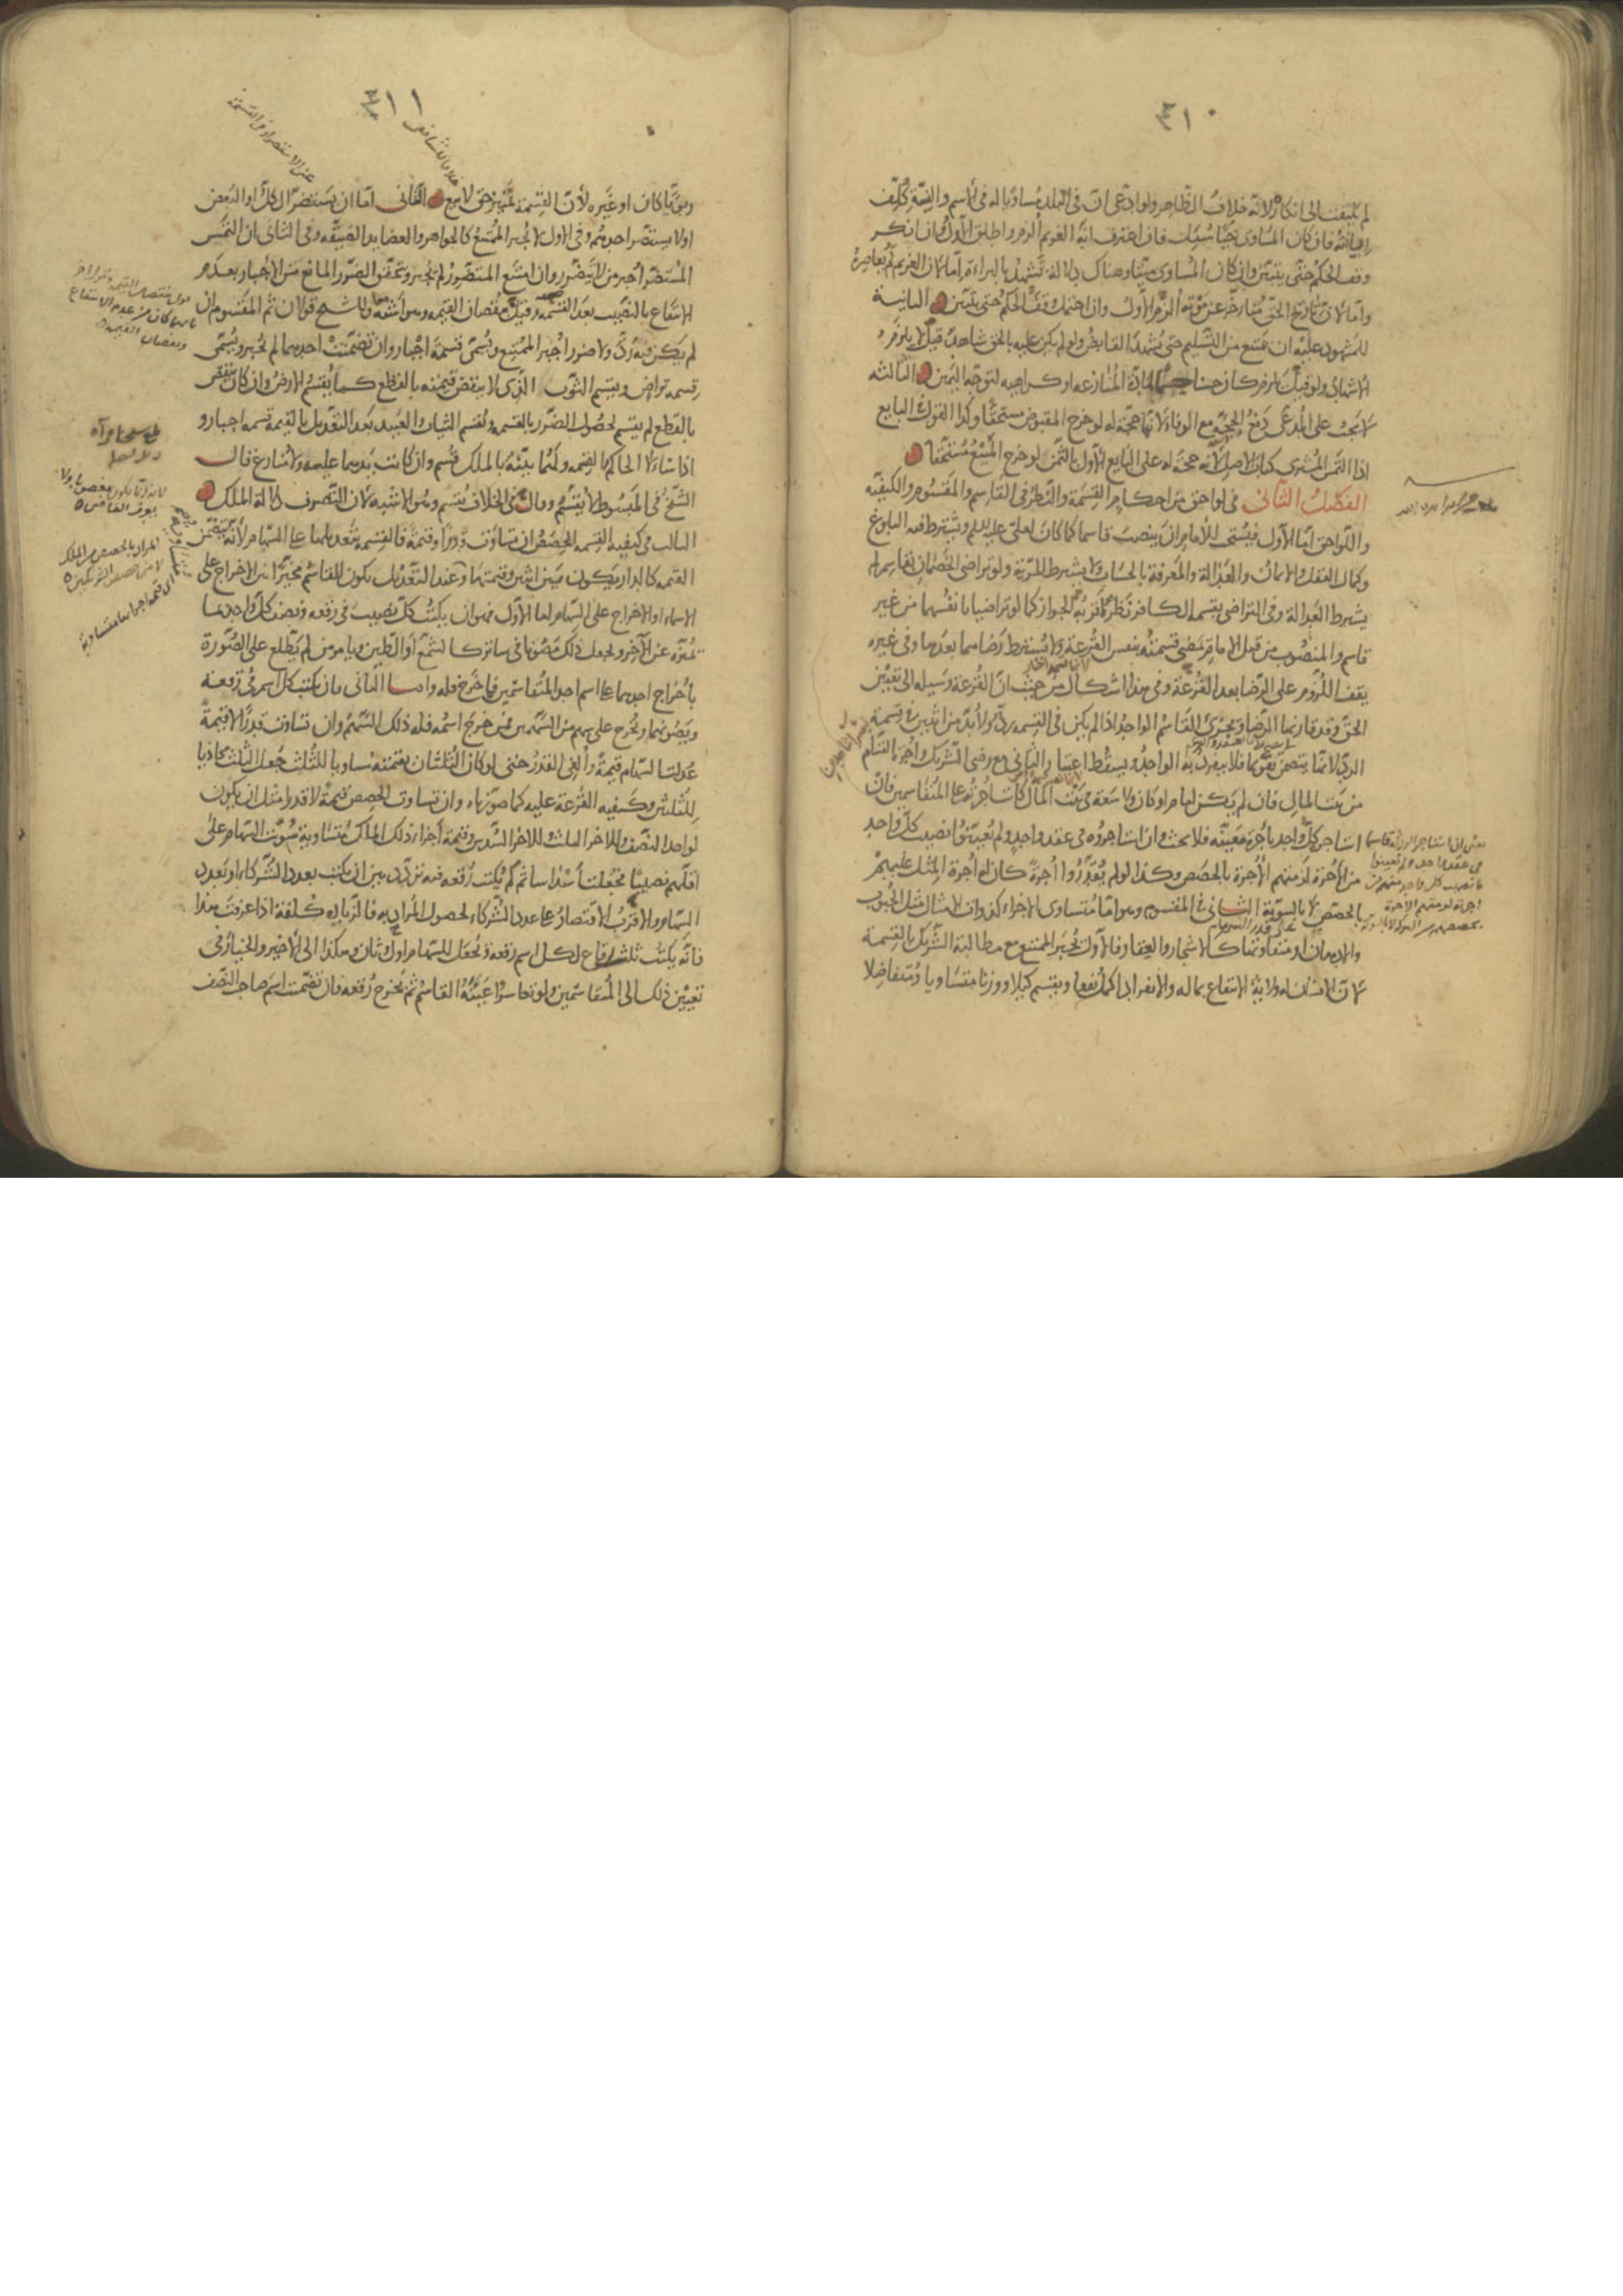 ٣١٠
لم يلتفت الى انكاره لانه خلاف الظاهر ولو ادعى ان فى البلد مساويا له فى الاسم والنسبة كلف
ابانته فان كان المساوى حيا سئل فان اعترف انه الغريم الزم واطلق الاول وان انكر
وقف الحكم حتى يتبين وان كان المساوى ميتا وهناك دلالة تشهد بالبراءة اما لان الغريم لم يعاصره
واما لان تاريخ الحق متاخر عن موته الزم الاول وان احتمل وقف الحكم حتى يتبين الثانية
للمشهود عليه ان يمتنع من التسليم حتى يشهد القابض ولو لم يكن عليه بالحق شاهد قيل لا يلزم
الاشهاد ولو قيل يلزم كان حسنا حسما لمادة المنازعة او كراهية لتوجه اليمين الثالثة
لا يجب على المدعى دفع الحجة مع الوفاء لانها حجة له لو خرج المقبوض مستحقا وكذا القول فى البايع
اذا التمس المشترى كتاب الاصل لانه حجة له على البايع الاول بالثمن لو خرج المبيع مستحقا
الفصل الثانى فى لواحق من احكام القسمة والنظر فى القاسم والمقسوم والكيفية
واللواحق اما الاول فيستحب للامام ان ينصب قاسما كما كان لعلى عليه السلم ويشترط فيه البلوغ
وكمال العقل والايمان والعدالة والمعرفة بالحساب ولا يشترط الحرية ولو تراضى الخصمان بقاسم لم
يشترط العدالة وفى التراضى بقسمة الكافر نظر اقربه الجواز كما لو تراضيا بانفسهما من غير
قاسم والمنصوب من قبل الامام تمضى قسمته بنفس القرعة ولا يشترط رضاهما بعدها وفى غيره
يقف اللزوم على الرضا بعد القرعة وفى هذا اشكال من حيث ان القرعة وسيلة الى تعيين
الحق وقد قارنها الرضا ويجزى القاسم الواحد اذا لم يكن فى القسمة رد ولا بد من اثنين فى قسمة
الرد لانها يتضمن تقويما فلا ينفرد به الواحد ويسقط اعتبار الثانى مع رضى الشريك واجرة القسام
من بيت المال فان لم يكن امام او كان ولا سعة فى بيت المال كانت اجرته على المتقاسمين فان
استاجر كل واحد باجرة معينة فلا بحث وان استاجروه فى عقد واحد ولم يعينوا نصيب كل واحد
من الاجرة لزمتهم الاجرة بالحصص وكذا لو لم يقدروا اجرة كان له اجرة المثل عليهم
بالحصص لا بالسوية الثانى فى المقسوم وهو اما متساوى الاجزاء كذوات الامثال مثل الحبوب
والادهان او متفاوتها كالاشجار والعقار فالاول يجبر الممتنع مع مطالبة الشريك بالقسمة
لان الانسان له ولاية الانتفاع بماله والانفراد اكمل نفعا ويقسم كيلا ووزنا متساويا ومتفاضلا
٣١١
ربويا كان او غيره لان القسمة تمييز حق لا بيع الثانى اما ان يستضر الكل او البعض
او لا يستضر احدهم وفى الاول لا يجبر الممتنع كالجواهر والعضايد الضيقة وفى الثانى ان التمس
المستضر اجبر من لا يتضرر وان امتنع المتضرر لم يجبر ويتحقق الضرر المانع من الاجبار بعدم
الانتفاع بالنصيب بعد القسمة وقيل بنقصان القيمة وهو اشبه وللشيخ قولان ثم المقسوم ان
لم يكن فيه رد ولا ضرر اجبر الممتنع ويسمى قسمة اجبار وان تضمنت احدهما لم يجبر ويسمى
قسمة تراض ويقسم الثوب الذى لا ينقص قيمته بالقطع كما يقسم الارض وان كان ينقص
بالقطع لم يقسم لحصول الضرر بالقسمة وتقسم الثياب والعبيد بعد التعديل بالقيمة قسمة اجبار و
اذا سالا الحاكم القسمة ولهما بينة بالملك قسم وان كانت يدهما عليه ولا منازع قال
الشيخ فى المبسوط لا يقسم وقال فى الخلاف يقسم وهو الاشبه لان التصرف دلالة الملك
الثالث فى كيفية القسمة الحصص ان تساوت قدرا وقيمة فالقسمة بتعديلها على السهام لانه يتضمن
القيمة كالدار يكون بين اثنين وقيمتها وعند التعديل يكون القاسم مخيرا بين الاخراج على
الاسماء او الاخراج على السهام اما الاول فهو ان يكتب كل نصيب فى رقعة ويصف كل واحد بما
يميزه عن الاخر ويجعل ذلك مصونا فى ساتر كالشمع او الطين ويامر من لم يطلع على الصورة
باخراج احدهما على اسم احد المتقاسمين فما خرج فله واما الثانى فان يكتب كل اسم فى رقعة
ويصونهما ويخرج على سهم من السهمين فمن خرج اسمه فله ذلك السهم وان تساوت قدرا لا قيمة
عدلت السهام قيمة والغى القدر حتى لو كان الثلثان بقيمته مساويا للثلث جعل الثلث محاذيا
للثلثين وكيفية القرعة عليه كما صورناه وان تساوت الحصص قيمة لا قدرا مثل ان يكون
لواحد النصف وللاخر الثلث وللاخر السدس وقيمة اجزاء ذلك الملك متساوية سويت السهام على
اقلهم نصيبا فجعلت اسداسا ثم كم يكتب رقعة فيه تردد بين ان يكتب بعدد الشركاء او بعدد
السهام والاقرب الاقتصار على عدد الشركاء لحصول المراد به فالزيادة كلفة اذا عرفت هذا
فانه يكتب ثلث رقاع لكل اسم رقعة ويجعل للسهام اول وثان وهكذا الى الاخير والخيار فى
تعيين ذلك الى المتقاسمين ولو تعاسروا عينه القاسم ثم يخرج رقعة فان تضمنت اسم صاحب النصف